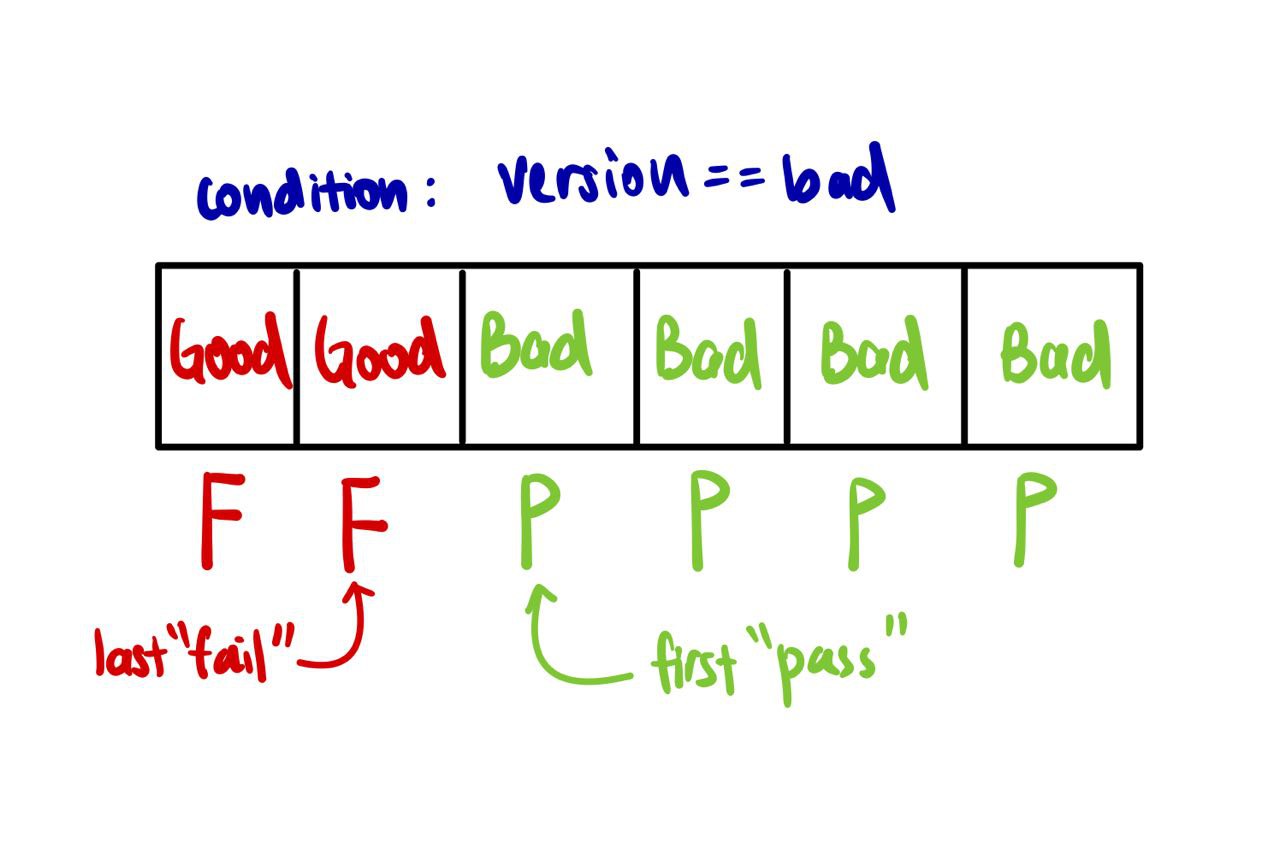 condition: version == bad
Good Good Bad Bad Bad Bad
F F P P P P
last "fail" first "pass"